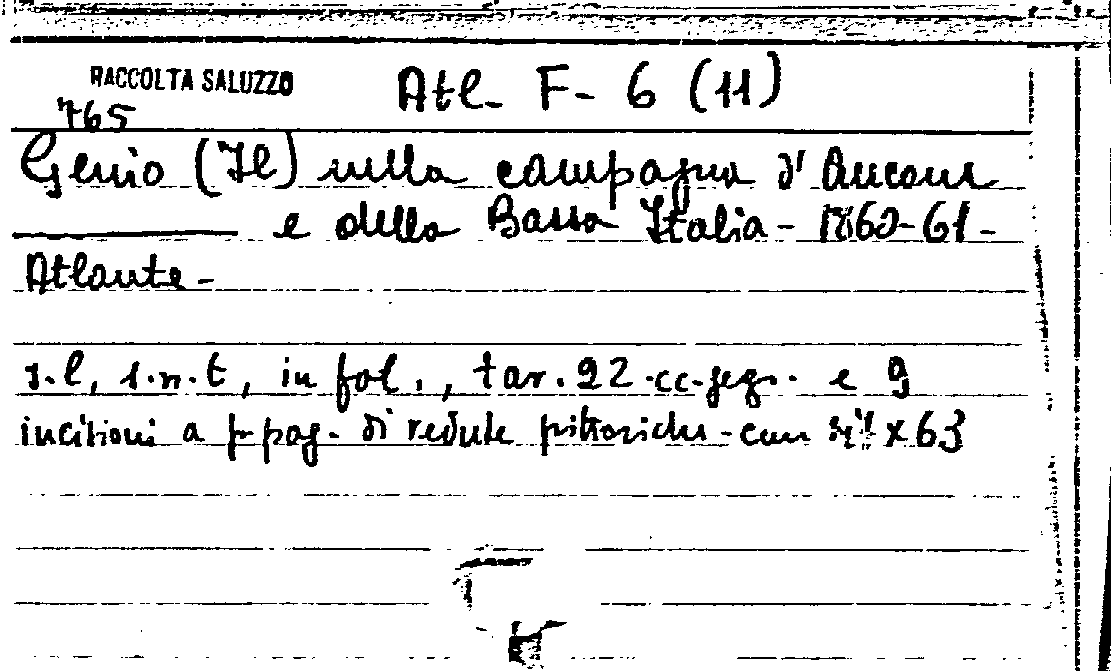 RACCOLTA SALUZZO Atl- F- 6 (11)
765
Genio (Il) nella campagna d'Ancona
e della Bassa Italia - 1860-61 -
Atlante -
s.l, s.n.t, in fol., tav. 22 cc. segs. e 9
incisioni a p. pag. di vedute pittoriche - cm x 63